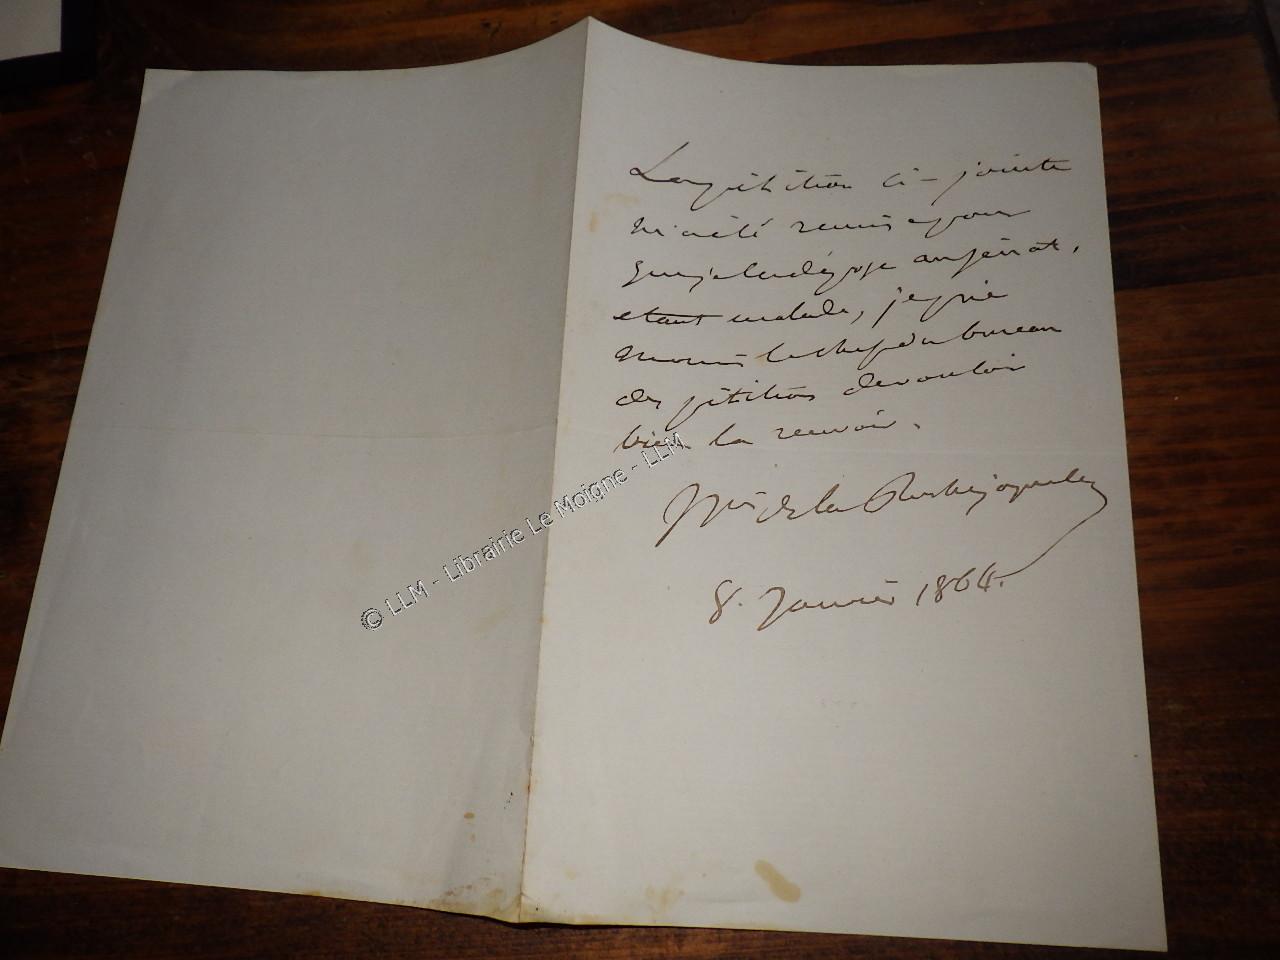 La pétition ci-jointe
m'a été remise pour
que je la dépose au sénat,
etant malade, je prie
Monsr le chef du bureau
des pétitions de vouloir
bien la recevoir.
Mis de la Rochejaquelein
8. Janvier 1864.
© LLM - Librairie Le Moigne - LLM